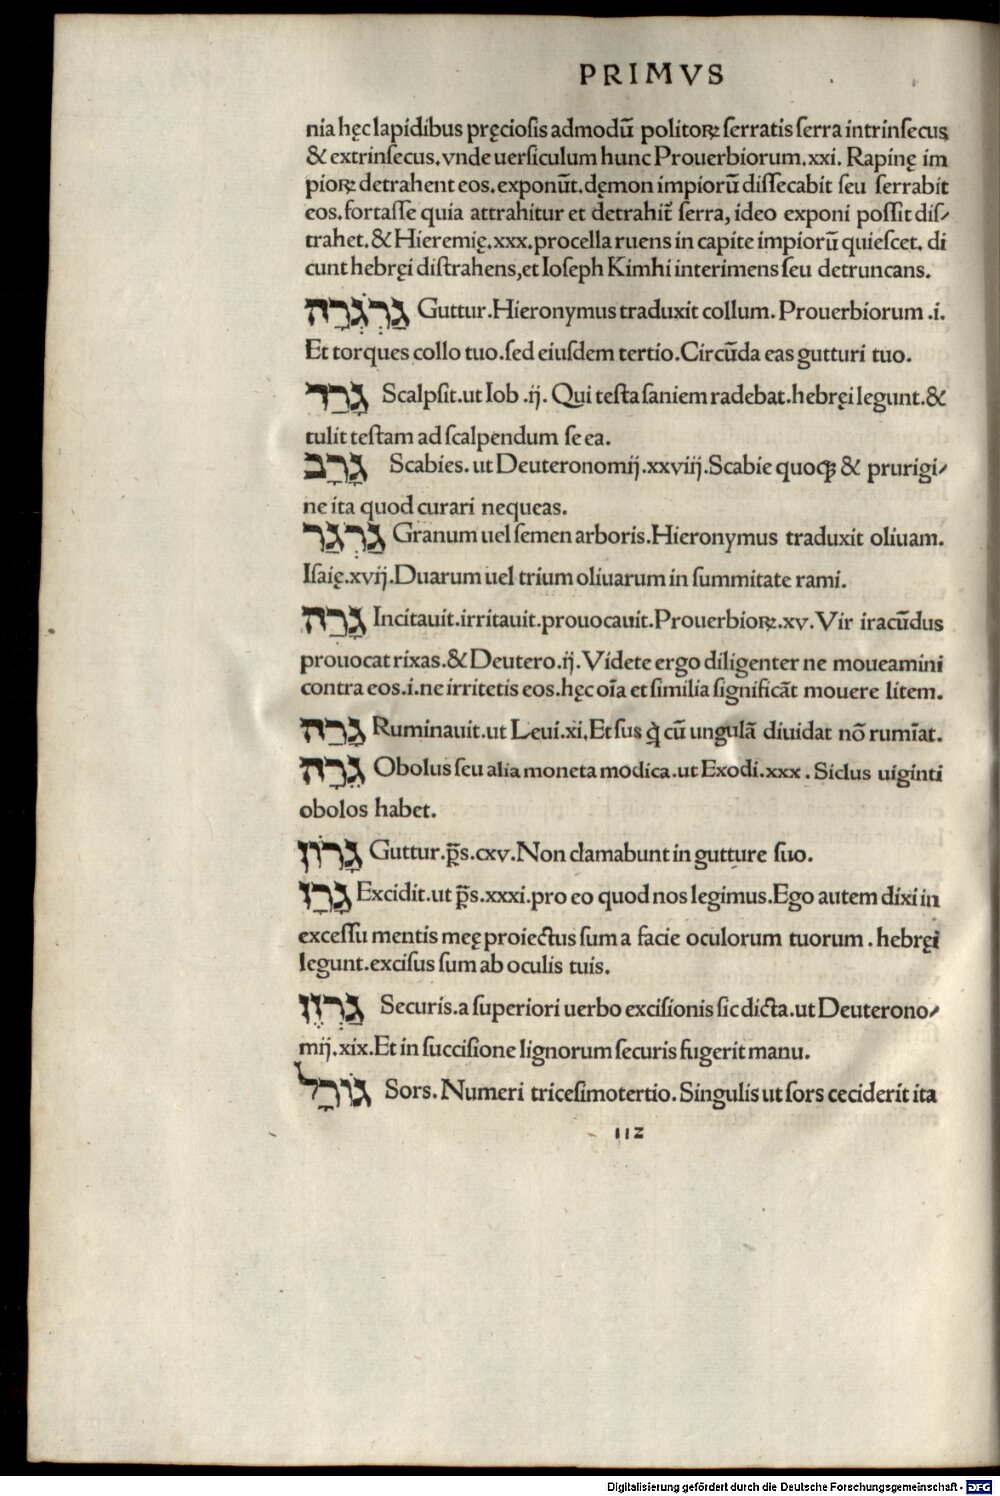 PRIMVS
nia hęc lapidibus pręciosis admodũ politoꝝ serratis serra intrinsecus
& extrinsecus. vnde uersiculum hunc Prouerbiorum. xxi. Rapinę im
pioꝝ detrahent eos. exponũt. dęmon impiorũ dissecabit seu serrabit
eos. fortasse quia attrahitur et detrahit̃ serra, ideo exponi possit dis/
trahet. & Hieremię. xxx. procella ruens in capite impiorũ quiescet. di
cunt hebręi distrahens, et Ioseph Kimhi interimens seu detruncans.
גַרְגְרָה Guttur. Hieronymus traduxit collum. Prouerbiorum .i.
Et torques collo tuo. sed eiusdem tertio. Circũda eas gutturi tuo.
גָרַד Scalpsit. ut Iob .ij. Qui testa saniem radebat. hebręi legunt. &
tulit testam ad scalpendum se ea.
גָרָב Scabies. ut Deuteronomij. xxviij. Scabie quoqꝫ & prurigi/
ne ita quod curari nequeas.
גַרְגַר Granum uel semen arboris. Hieronymus traduxit oliuam.
Isaię. xvij. Duarum uel trium oliuarum in summitate rami.
גָרָה Incitauit. irritauit. prouocauit. Prouerbioꝝ. xv. Vir iracũdus
prouocat rixas. & Deutero. ij. Videte ergo diligenter ne moueamini
contra eos. i. ne irritetis eos. hęc oĩa et similia significãt mouere litem.
גָרָה Ruminauit. ut Leui. xi. Et sus q̃ cũ ungulã diuidat nõ rumĩat.
גֵרָה Obolus seu alia moneta modica. ut Exodi. xxx. Siclus uiginti
obolos habet.
גָרוֹן Guttur. p̃s. cxv. Non clamabunt in gutture suo.
גָרַן Excidit. ut p̃s. xxxi. pro eo quod nos legimus. Ego autem dixi in
excessu mentis meę proiectus sum a facie oculorum tuorum. hebręi
legunt. excisus sum ab oculis tuis.
גַרְזֶן Securis. a superiori uerbo excisionis sic dicta. ut Deuterono/
mij. xix. Et in succisione lignorum securis fugerit manu.
גוֹרָל Sors. Numeri tricesimotertio. Singulis ut sors ceciderit ita
112
Digitalisierung gefördert durch die Deutsche Forschungsgemeinschaft - DFG